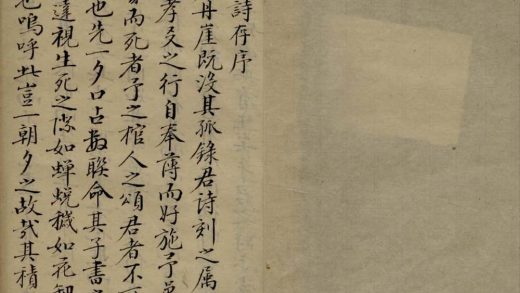 詩存序
丹崖既没其孤錄君詩刻之属
孝友之行自奉薄而好施予
而死者予之棺人之頌君者不
也先一夕口占數聯命其子書
達視生死之際如蟬蛻穢如花
嗚呼此豈一朝夕之故哉其積